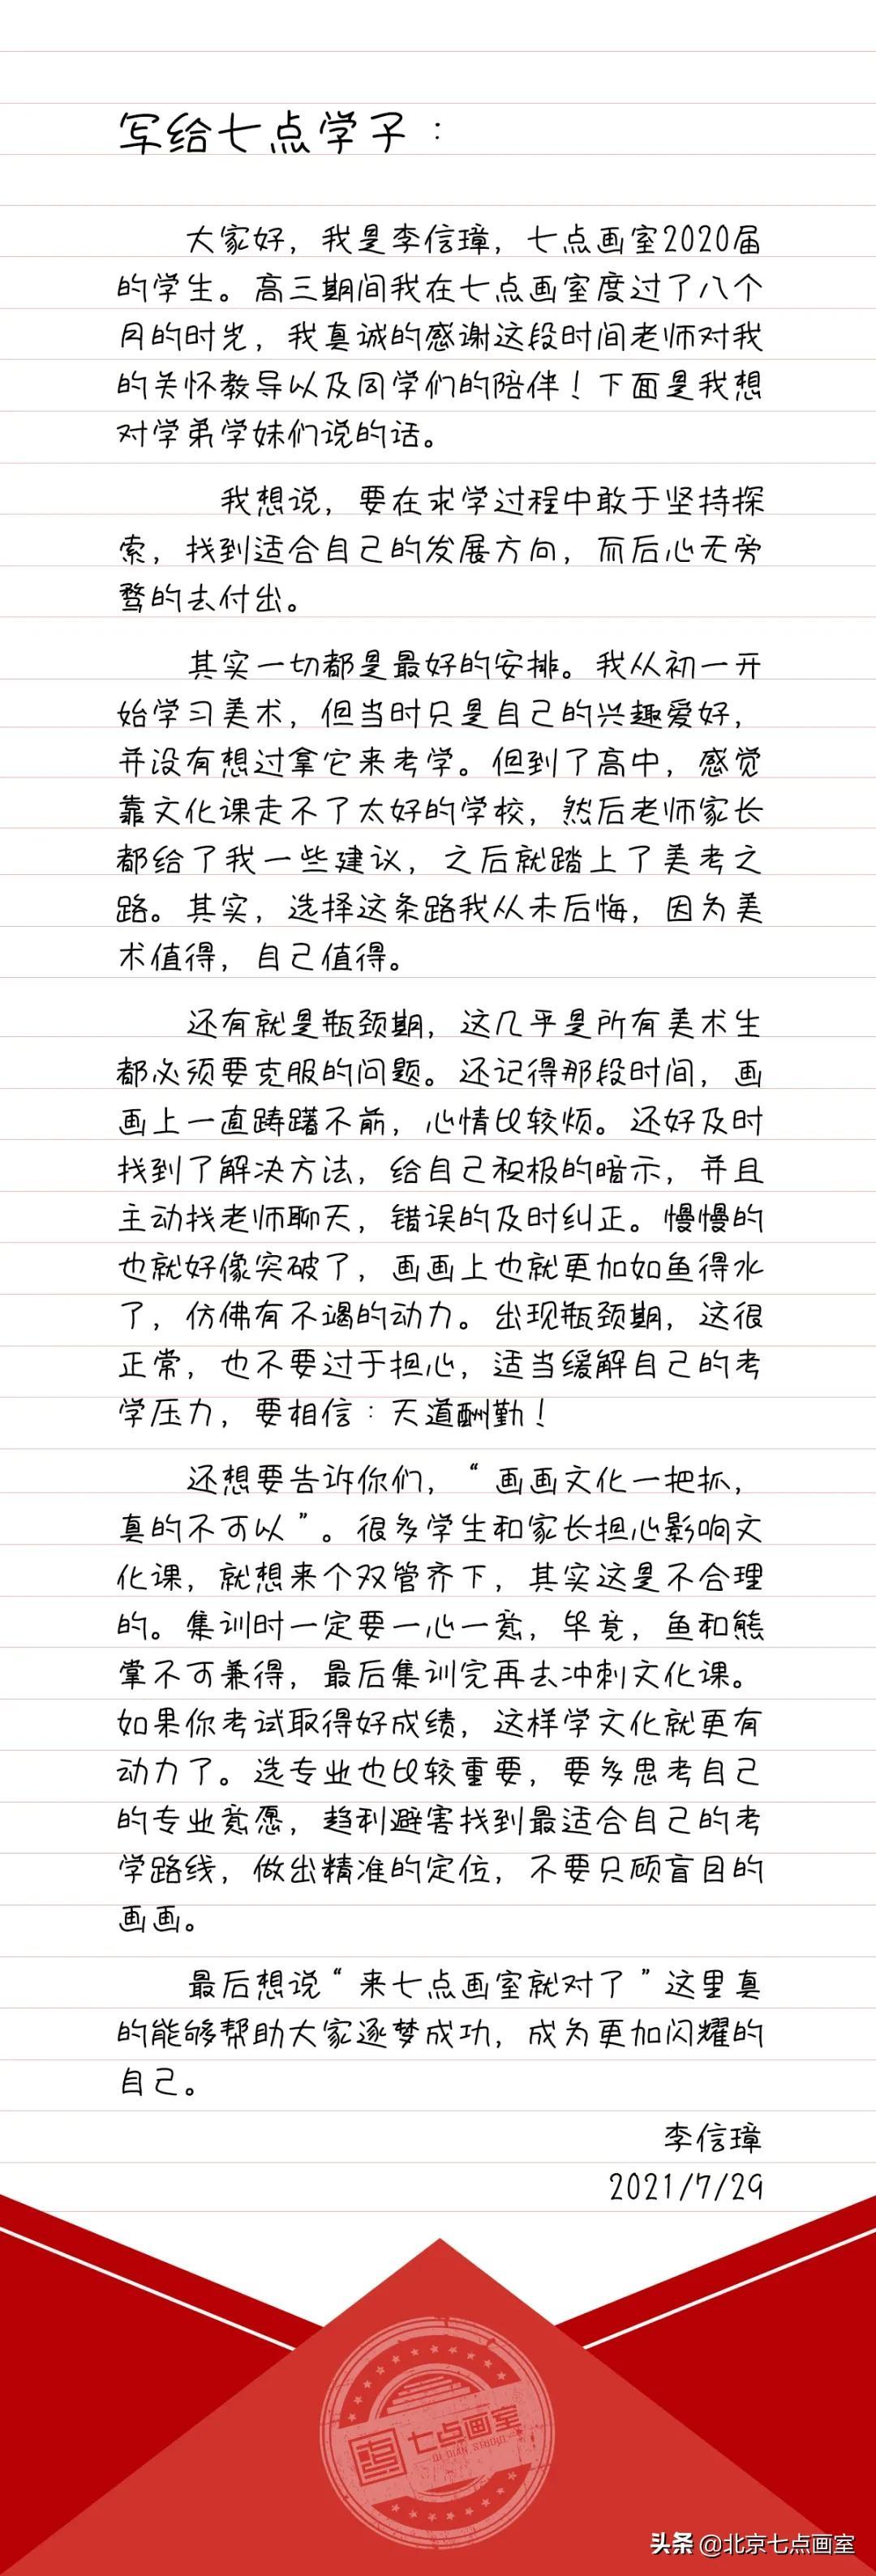 写给七点学子：
大家好，我是李信璋，七点画室2020届
的学生。高三期间我在七点画室度过了八个
月的时光，我真诚的感谢这段时间老师对我
的关怀教导以及同学们的陪伴！下面是我想
对学弟学妹们说的话。
我想说，要在求学过程中敢于坚持探
索，找到适合自己的发展方向，而后心无旁
骛的去付出。
其实一切都是最好的安排。我从初一开
始学习美术，但当时只是自己的兴趣爱好，
并没有想过拿它来考学。但到了高中，感觉
靠文化课走不了太好的学校，然后老师家长
都给了我一些建议，之后就踏上了美考之
路。其实，选择这条路我从未后悔，因为美
术值得，自己值得。
还有就是瓶颈期，这几乎是所有美术生
都必须要克服的问题。还记得那段时间，画
画上一直踌躇不前，心情比较烦。还好及时
找到了解决方法，给自己积极的暗示，并且
主动找老师聊天，错误的及时纠正。慢慢的
也就好像突破了，画画上也就更加如鱼得水
了，仿佛有不竭的动力。出现瓶颈期，这很
正常，也不要过于担心，适当缓解自己的考
学压力，要相信：天道酬勤！
还想要告诉你们，“画画文化一把抓，
真的不可以”。很多学生和家长担心影响文
化课，就想来个双管齐下，其实这是不合理
的。集训时一定要一心一意，毕竟，鱼和熊
掌不可兼得，最后集训完再去冲刺文化课。
如果你考试取得好成绩，这样学文化就更有
动力了。选专业也比较重要，要多思考自己
的专业意愿，趋利避害找到最适合自己的考
学路线，做出精准的定位，不要只顾盲目的
画画。
最后想说“来七点画室就对了”这里真
的能够帮助大家逐梦成功，成为更加闪耀的
自己。
李信璋
2021/7/29
七点画室
QI DIAN STUDIO
头条 @北京七点画室